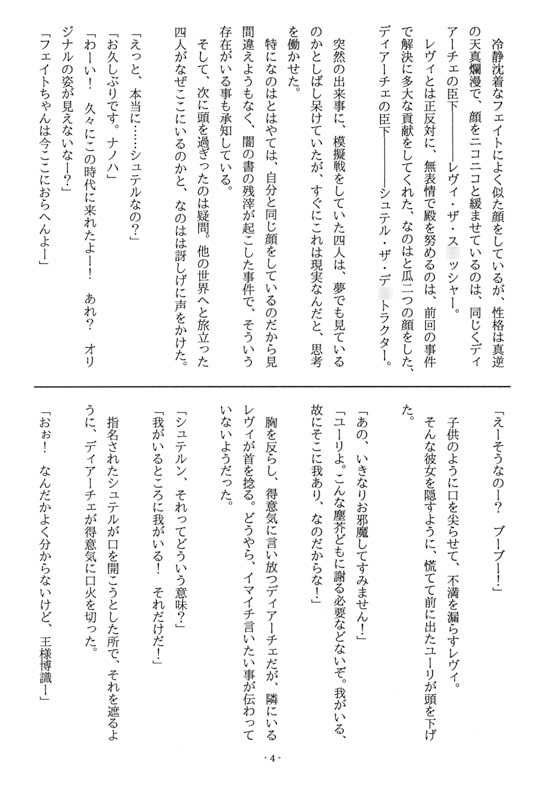 冷静沈着なフェイトによく似た顔をしているが、性格は真逆
の天真爛漫で、顔をニコニコと緩ませているのは、同じくディ
アーチェの臣下――――レヴィ・ザ・ス ッシャー。
レヴィとは正反対に、無表情で殿を努めるのは、前回の事件
で解決に多大な貢献をしてくれた、なのはと瓜二つの顔をした、
ディアーチェの臣下――――シュテル・ザ・デ トラクター。
突然の出来事に、模擬戦をしていた四人は、夢でも見ている
のかとしばし呆けていたが、すぐにこれは現実なんだと、思考
を働かせた。
特になのはとはやては、自分と同じ顔をしているのだから見
間違えようもなく、闇の書の残滓が起こした事件で、そういう
存在がいる事も承知している。
そして、次に頭を過ぎったのは疑問。他の世界へと旅立った
四人がなぜここにいるのかと、なのはは訝しげに声をかけた。
「えっと、本当に……シュテルなの?」
「お久しぶりです。ナノハ」
「わーい! 久々にこの時代に来れたよー! あれ? オリ
ジナルの姿が見えないなー?」
「フェイトちゃんは今ここにおらへんよー」
「えーそうなのー? ブーブー!」
子供のように口を尖らせて、不満を漏らすレヴィ。
そんな彼女を隠すように、慌てて前に出たユーリが頭を下げ
た。
「あの、いきなりお邪魔してすみません!」
「ユーリよ。こんな塵芥どもに謝る必要などないぞ。我がいる、
故にそこに我あり、なのだからな!」
胸を反らし、得意気に言い放つディアーチェだが、隣にいる
レヴィが首を捻る。どうやら、イマイチ言いたい事が伝わって
いないようだった。
「シュテルン、それってどういう意味?」
「我がいるところに我がいる! それだけだ!」
指名されたシュテルが口を開こうとした所で、それを遮るよ
うに、ディアーチェが得意気に口火を切った。
「おぉ! なんだかよく分からないけど、王様博識ー」
- 4 -